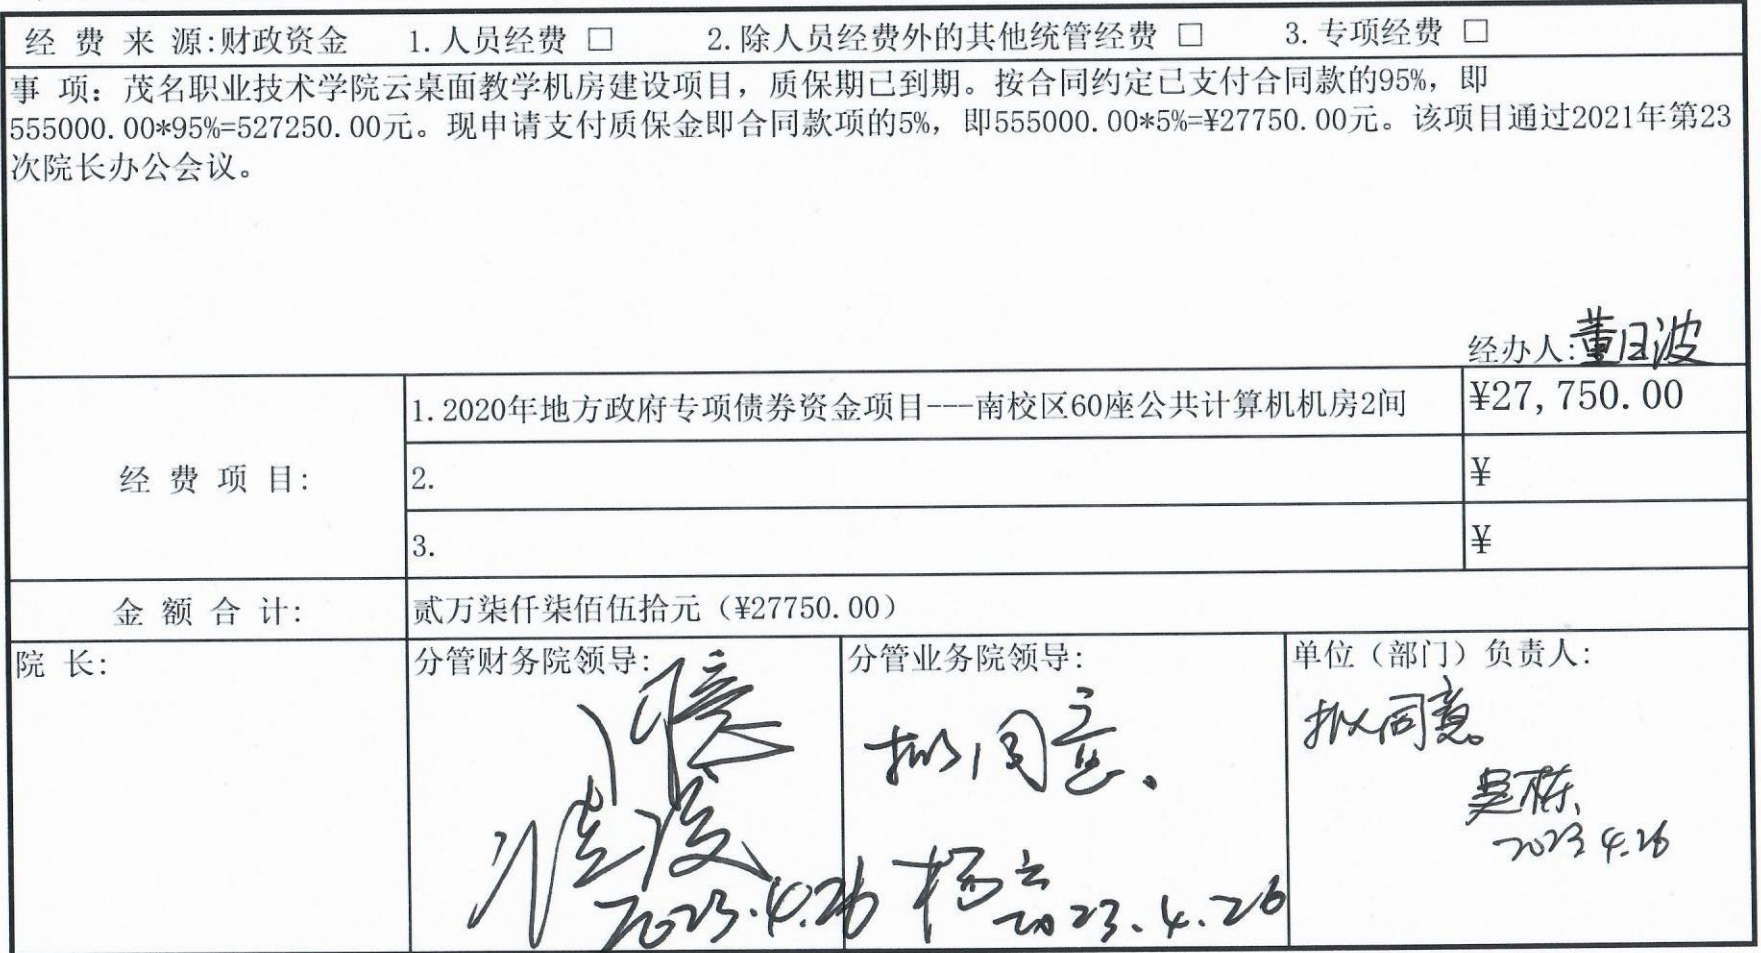 经 费 来 源:财政资金 1.人员经费 □ 2.除人员经费外的其他统管经费 □ 3.专项经费 □
事 项：茂名职业技术学院云桌面教学机房建设项目，质保期已到期。按合同约定已支付合同款的95%，即
555000.00*95%=527250.00元。现申请支付质保金即合同款项的5%，即555000.00*5%=¥27750.00元。该项目通过2021年第23
次院长办公会议。
经办人:董日波
1.2020年地方政府专项债券资金项目---南校区60座公共计算机机房2间 ¥27,750.00
经 费 项 目:
2. ¥
3. ¥
金 额 合 计: 贰万柒仟柒佰伍拾元（¥27750.00）
院 长: 分管财务院领导: 分管业务院领导: 单位（部门）负责人:
拟同意。
拟同意.
2023.4.26
杨云
2023.4.26
2023.4.26